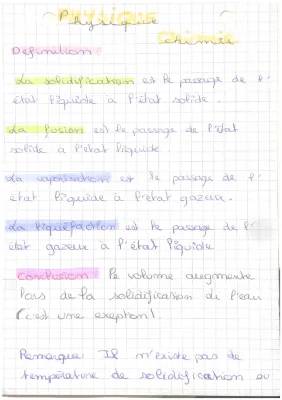 Physique
chimie
Definition
La solidification est le passage de l'
état liquide a l'état solide.
La fusion est le passage de l'état
solide à l'état liquide.
La vaporisation est le passage de l'
état liquide à l'état gazeux.
La liquéfaction est le passage de l'
état gazeux à l'état liquide
Conclusion: le volume augmente
lors de la solidification de l'eau
(c'est une exeption).
Remarque: Il n'existe pas de
température de solidification ou